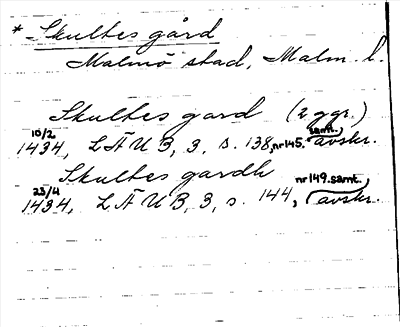 * Skultes gård
Malmö stad, Malm. l.
Skultes gard (2 ggr.)
10/2 1434, LÄUB, 3, s. 138, nr 145. samt. avskr.
Skultes gardh
23/4 1434, LÄUB, 3, s. 144, nr 149. samt. avskr.